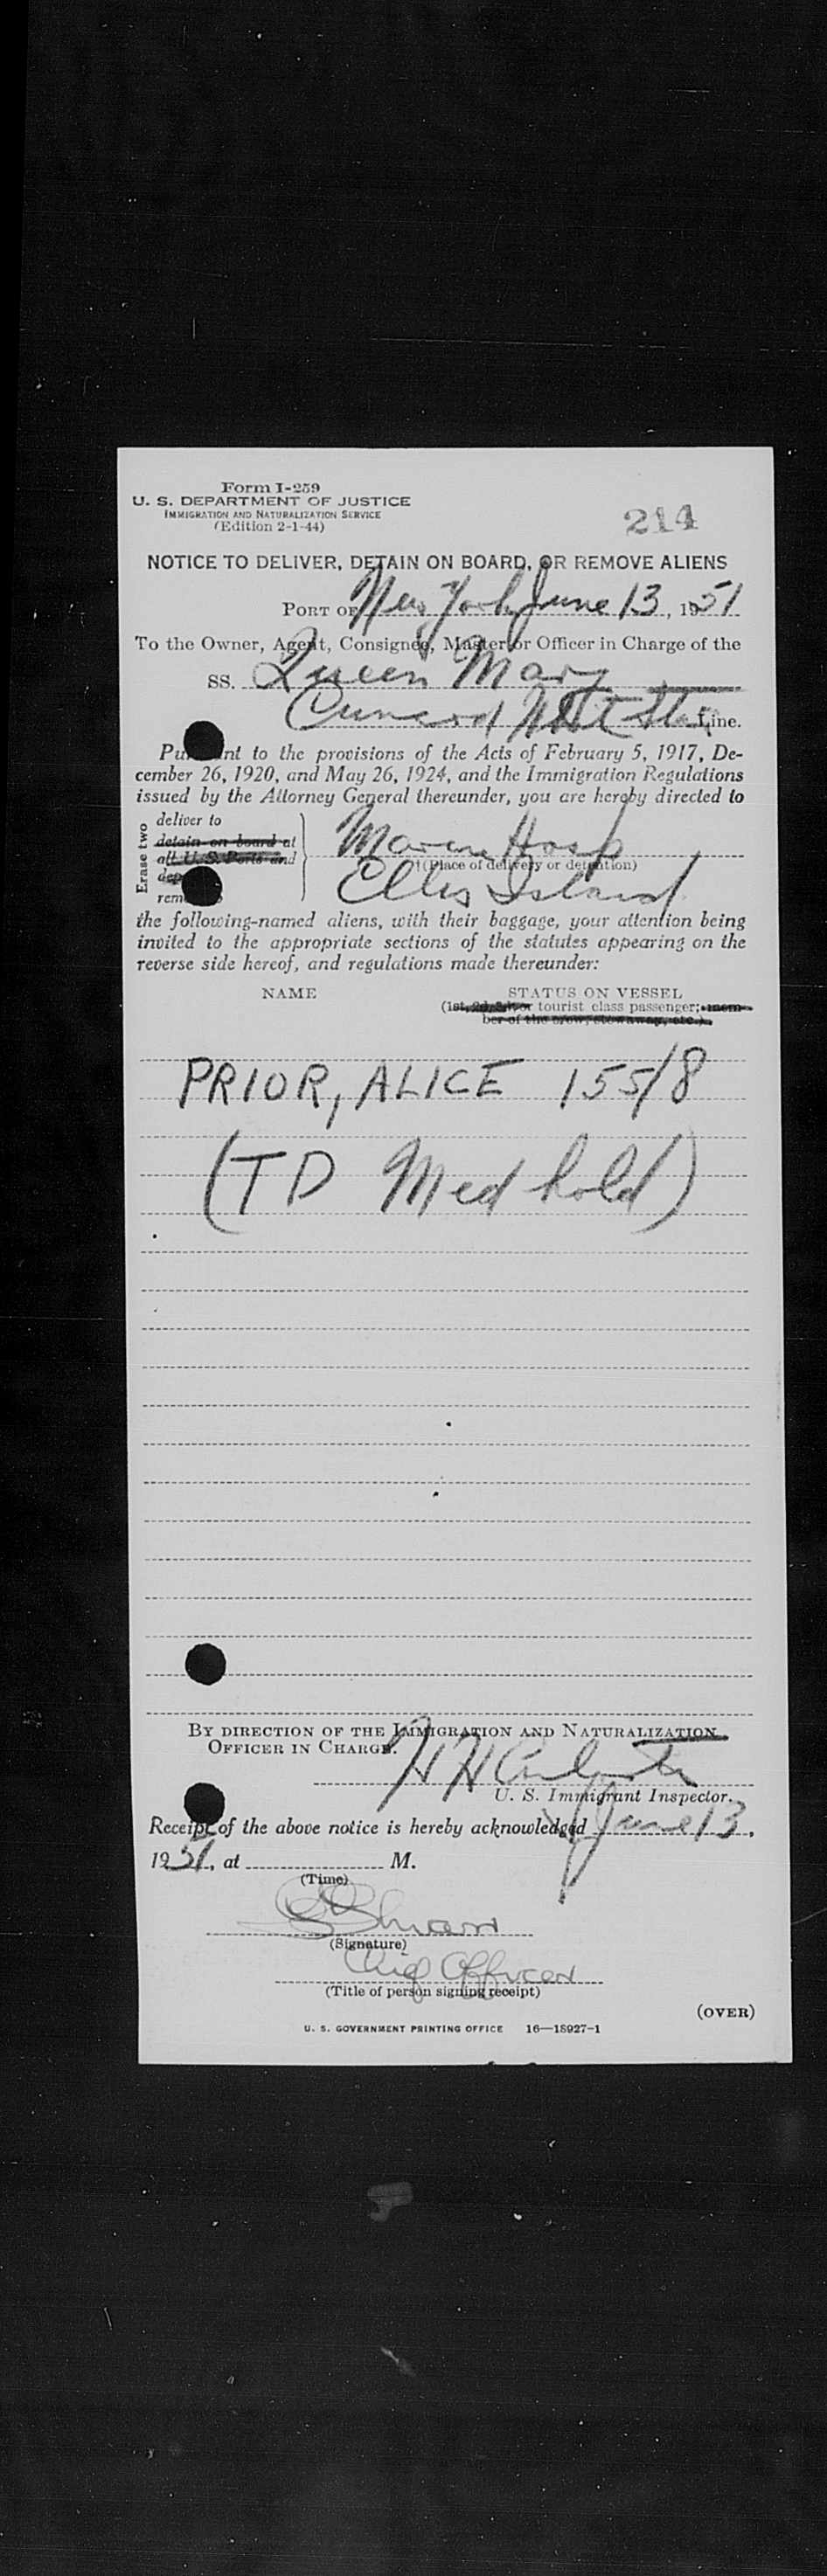 Form I-259
U. S. DEPARTMENT OF JUSTICE
IMMIGRATION AND NATURALIZATION SERVICE
(Edition 2-1-44)
214
NOTICE TO DELIVER, DETAIN ON BOARD, OR REMOVE ALIENS
PORT OF New York, June 13, 1951
To the Owner, Agent, Consignee, Master or Officer in Charge of the
SS. Queen Mary
Cunard White Star Line.
Pu nt to the provisions of the Acts of February 5, 1917, De-
cember 26, 1920, and May 26, 1924, and the Immigration Regulations
issued by the Attorney General thereunder, you are hereby directed to
Erase two
deliver to
detain on board at
all U. S. Ports and
dep
rem
Marine Hosp
(Place of delivery or detention)
Ellis Island
the following-named aliens, with their baggage, your attention being
invited to the appropriate sections of the statutes appearing on the
reverse side hereof, and regulations made thereunder:
NAME STATUS ON VESSEL
(1st, 2d, or tourist class passenger; mem-
ber of the crew, stowaway, etc.)
PRIOR, ALICE 155/8
(TD Med hold)
BY DIRECTION OF THE IMMIGRATION AND NATURALIZATION
OFFICER IN CHARGE.
H H
U. S. Immigrant Inspector.
Receipt of the above notice is hereby acknowledged June 13,
1951, at M.
(Time)
(Signature)
Chief Officer
(Title of person signing receipt)
(OVER)
U. S. GOVERNMENT PRINTING OFFICE 16—18927-1